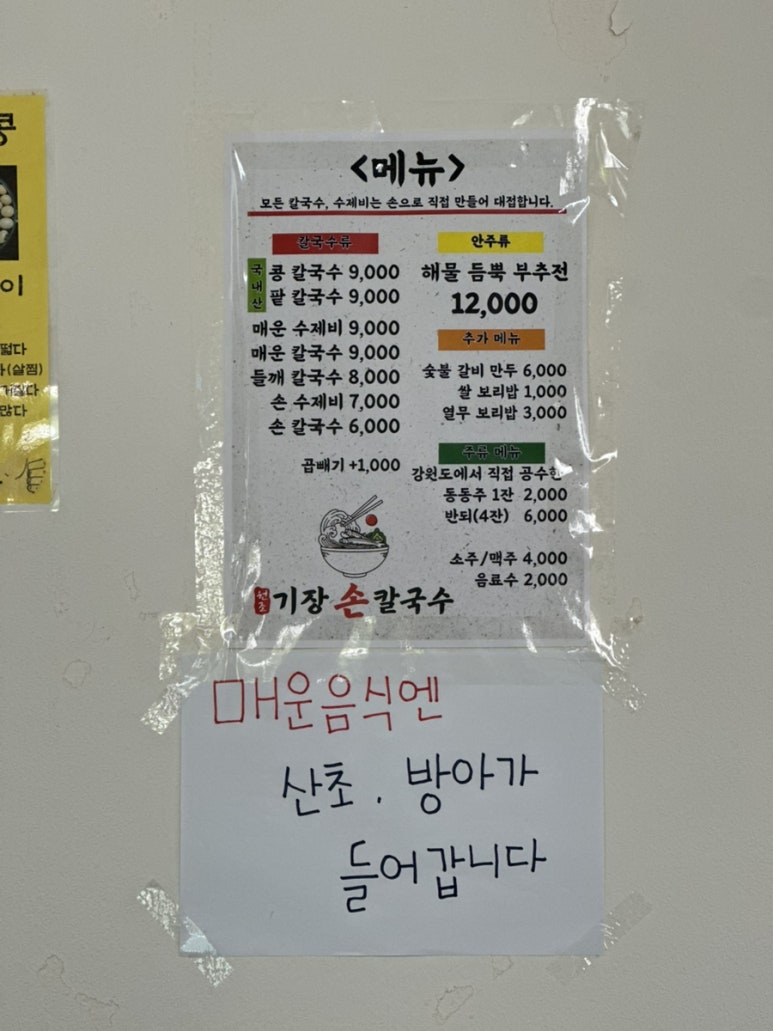 <메뉴>
모든 칼국수, 수제비는 손으로 직접 만들어 대접합니다.
칼국수류
국내산
콩 칼국수 9,000
팥 칼국수 9,000
매운 수제비 9,000
매운 칼국수 9,000
들깨 칼국수 8,000
손 수제비 7,000
손 칼국수 6,000
곱빼기 +1,000
안주류
해물 듬뿍 부추전
12,000
추가 메뉴
숯불 갈비 만두 6,000
쌀 보리밥 1,000
열무 보리밥 3,000
주류 메뉴
강원도에서 직접 공수한
동동주 1잔 2,000
반되(4잔) 6,000
소주/맥주 4,000
음료수 2,000
원조
기장 손 칼국수
매운음식엔
산초. 방아가
들어갑니다
콩
이
많다